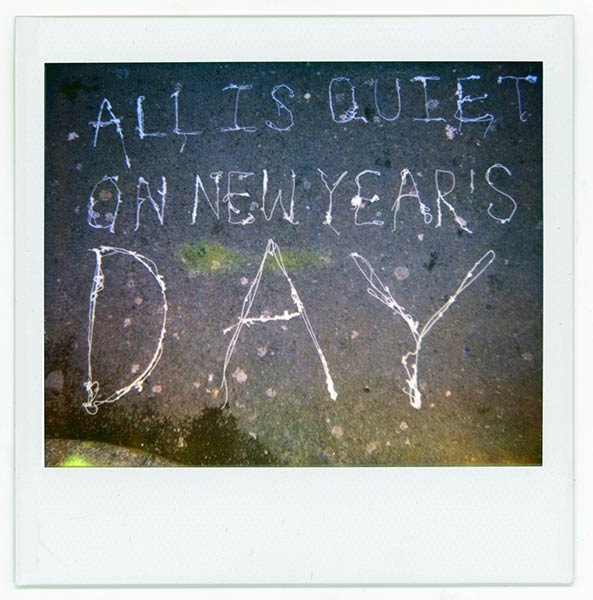 ALL IS QUIET
ON NEW YEAR'S
DAY